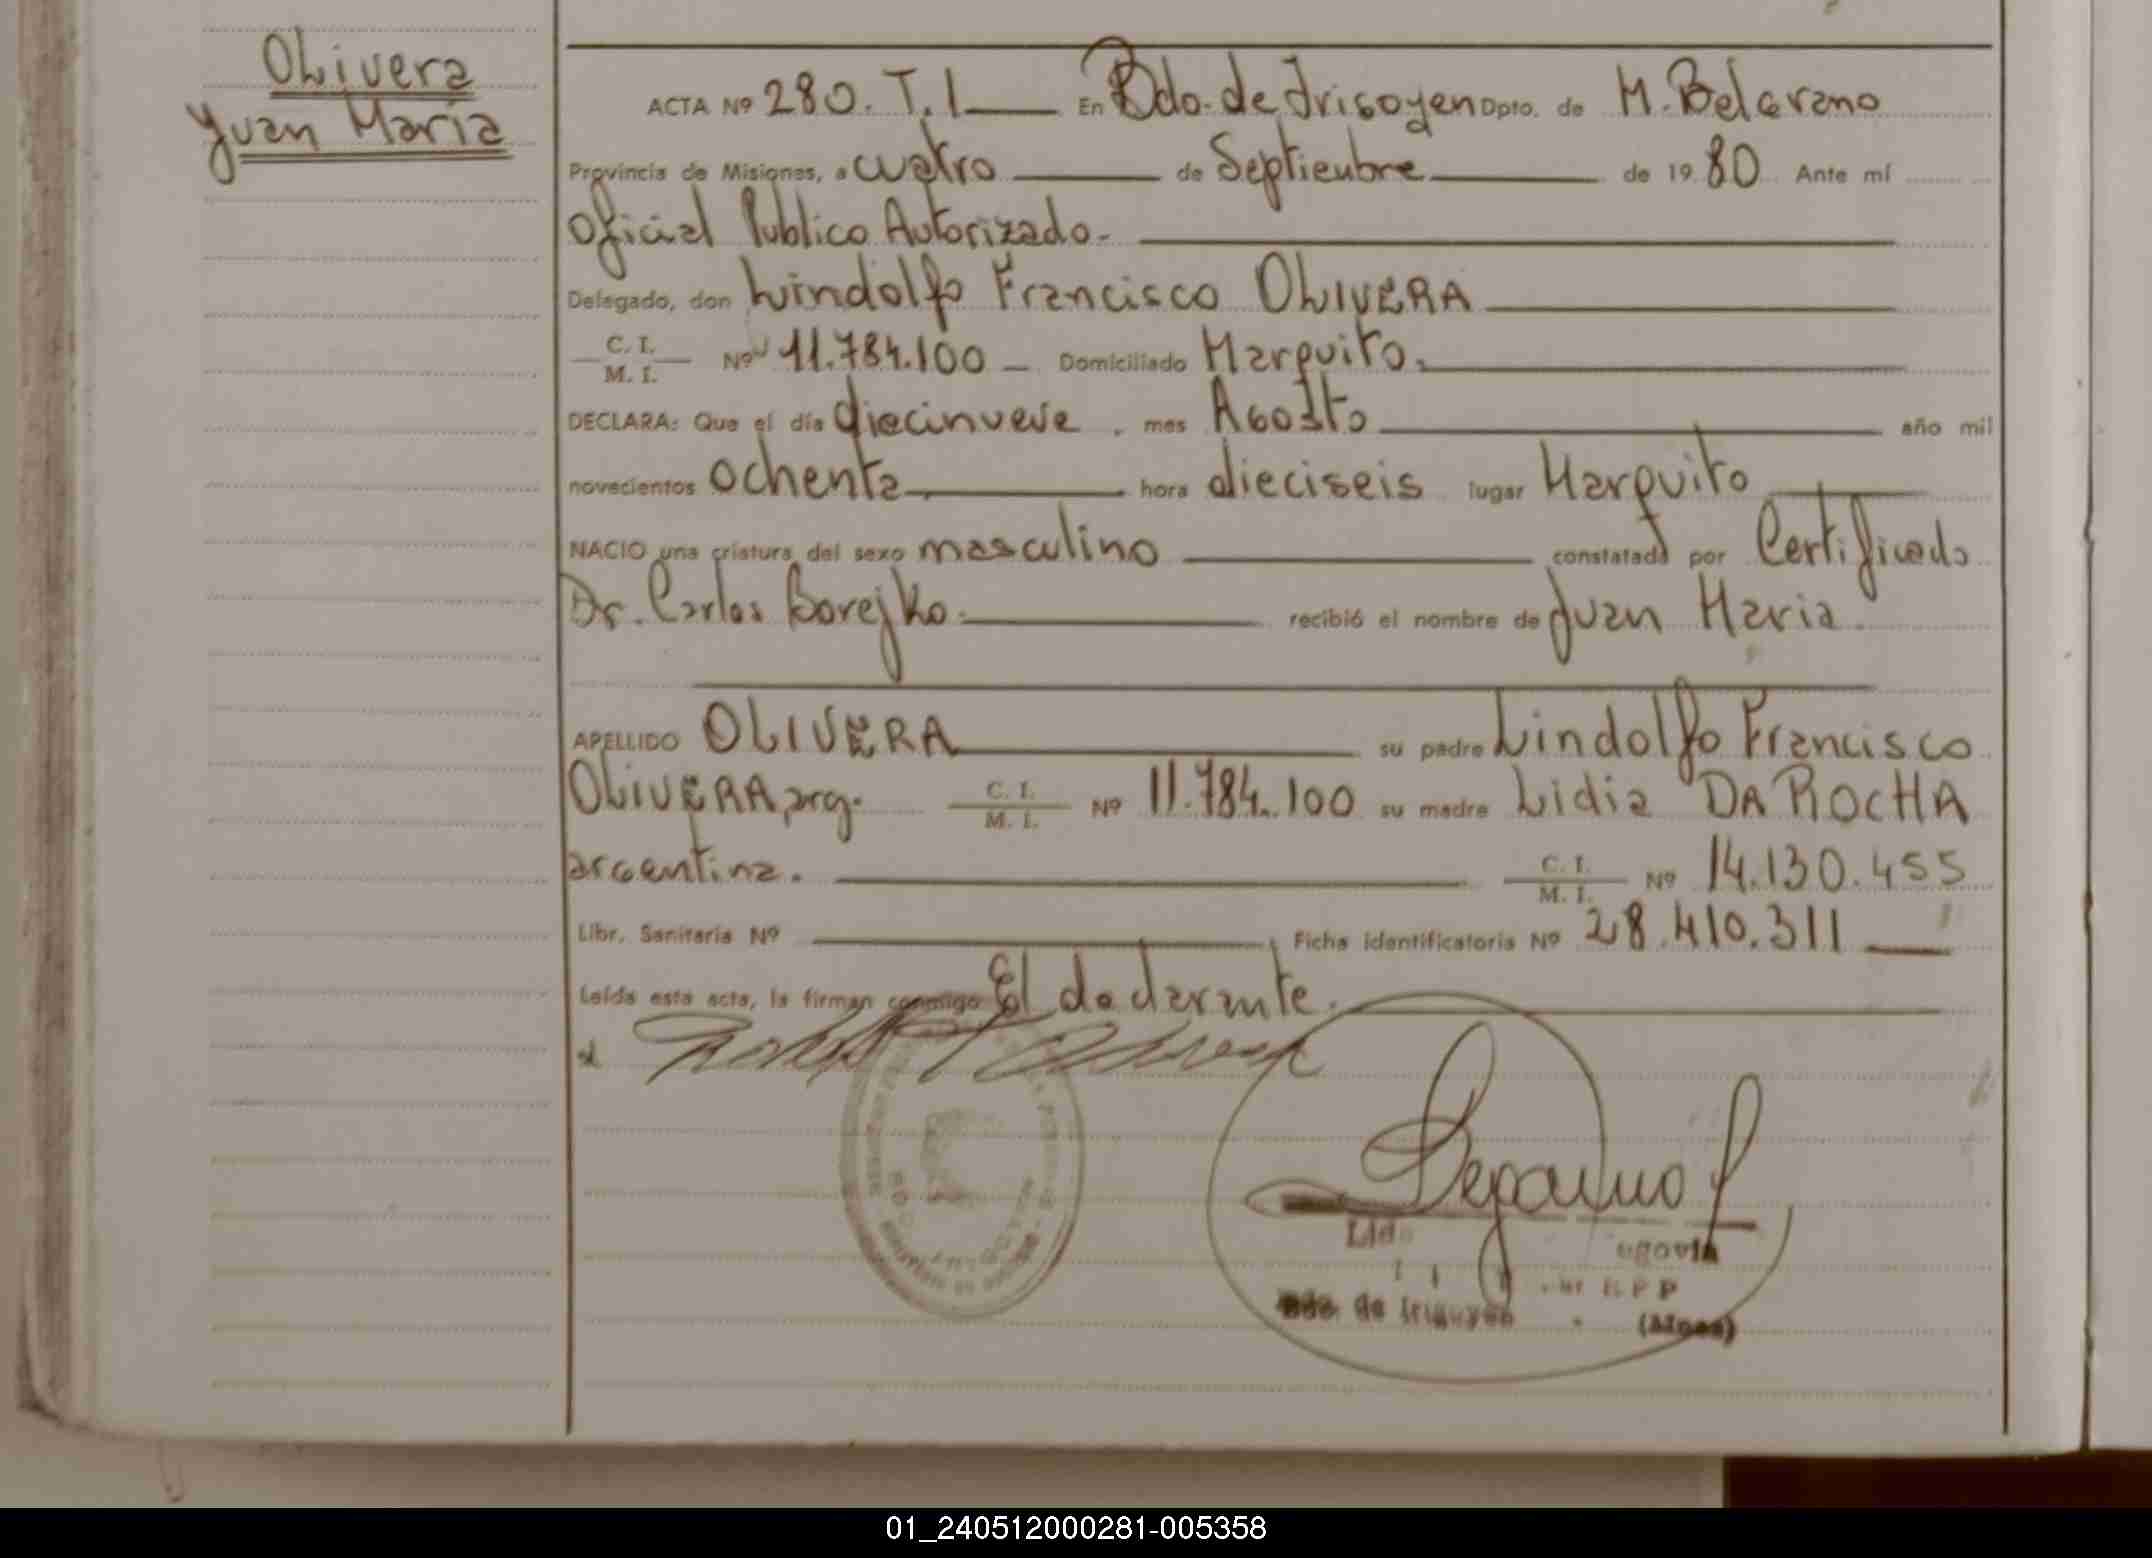 Olivera
Juan María
ACTA Nº 280. T. I En Bdo. de Irigoyen Dpto. de M. Belgrano
Provincia de Misiones, a cuatro de Septiembre de 1980 Ante mí
Oficial Publico Autorizado.
Delegado, don Lindolfo Francisco OLIVERA
C. I.
M. I. Nº 11.784.100 Domiciliado Marquito.
DECLARA: Que el día diecinueve, mes Agosto año mil
novecientos ochenta hora dieciseis lugar Marquito
NACIO una criatura del sexo masculino constatada por Certificado
Dr. Carlos Borejko. recibió el nombre de Juan Maria.
APELLIDO OLIVERA su padre Lindolfo Francisco
OLIVERA, arg. C. I.
M. I. Nº 11.784.100 su madre Lidia DA ROCHA
argentina. C. I.
M. I. Nº 14.130.455
Libr. Sanitaria Nº Ficha identificatoria Nº 28.410.311
Leída esta acta, la firman conmigo El declarante.
Bdo. de Irigoyen (Mnes)
01_240512000281-005358